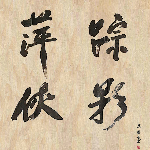 萍踪
侠影